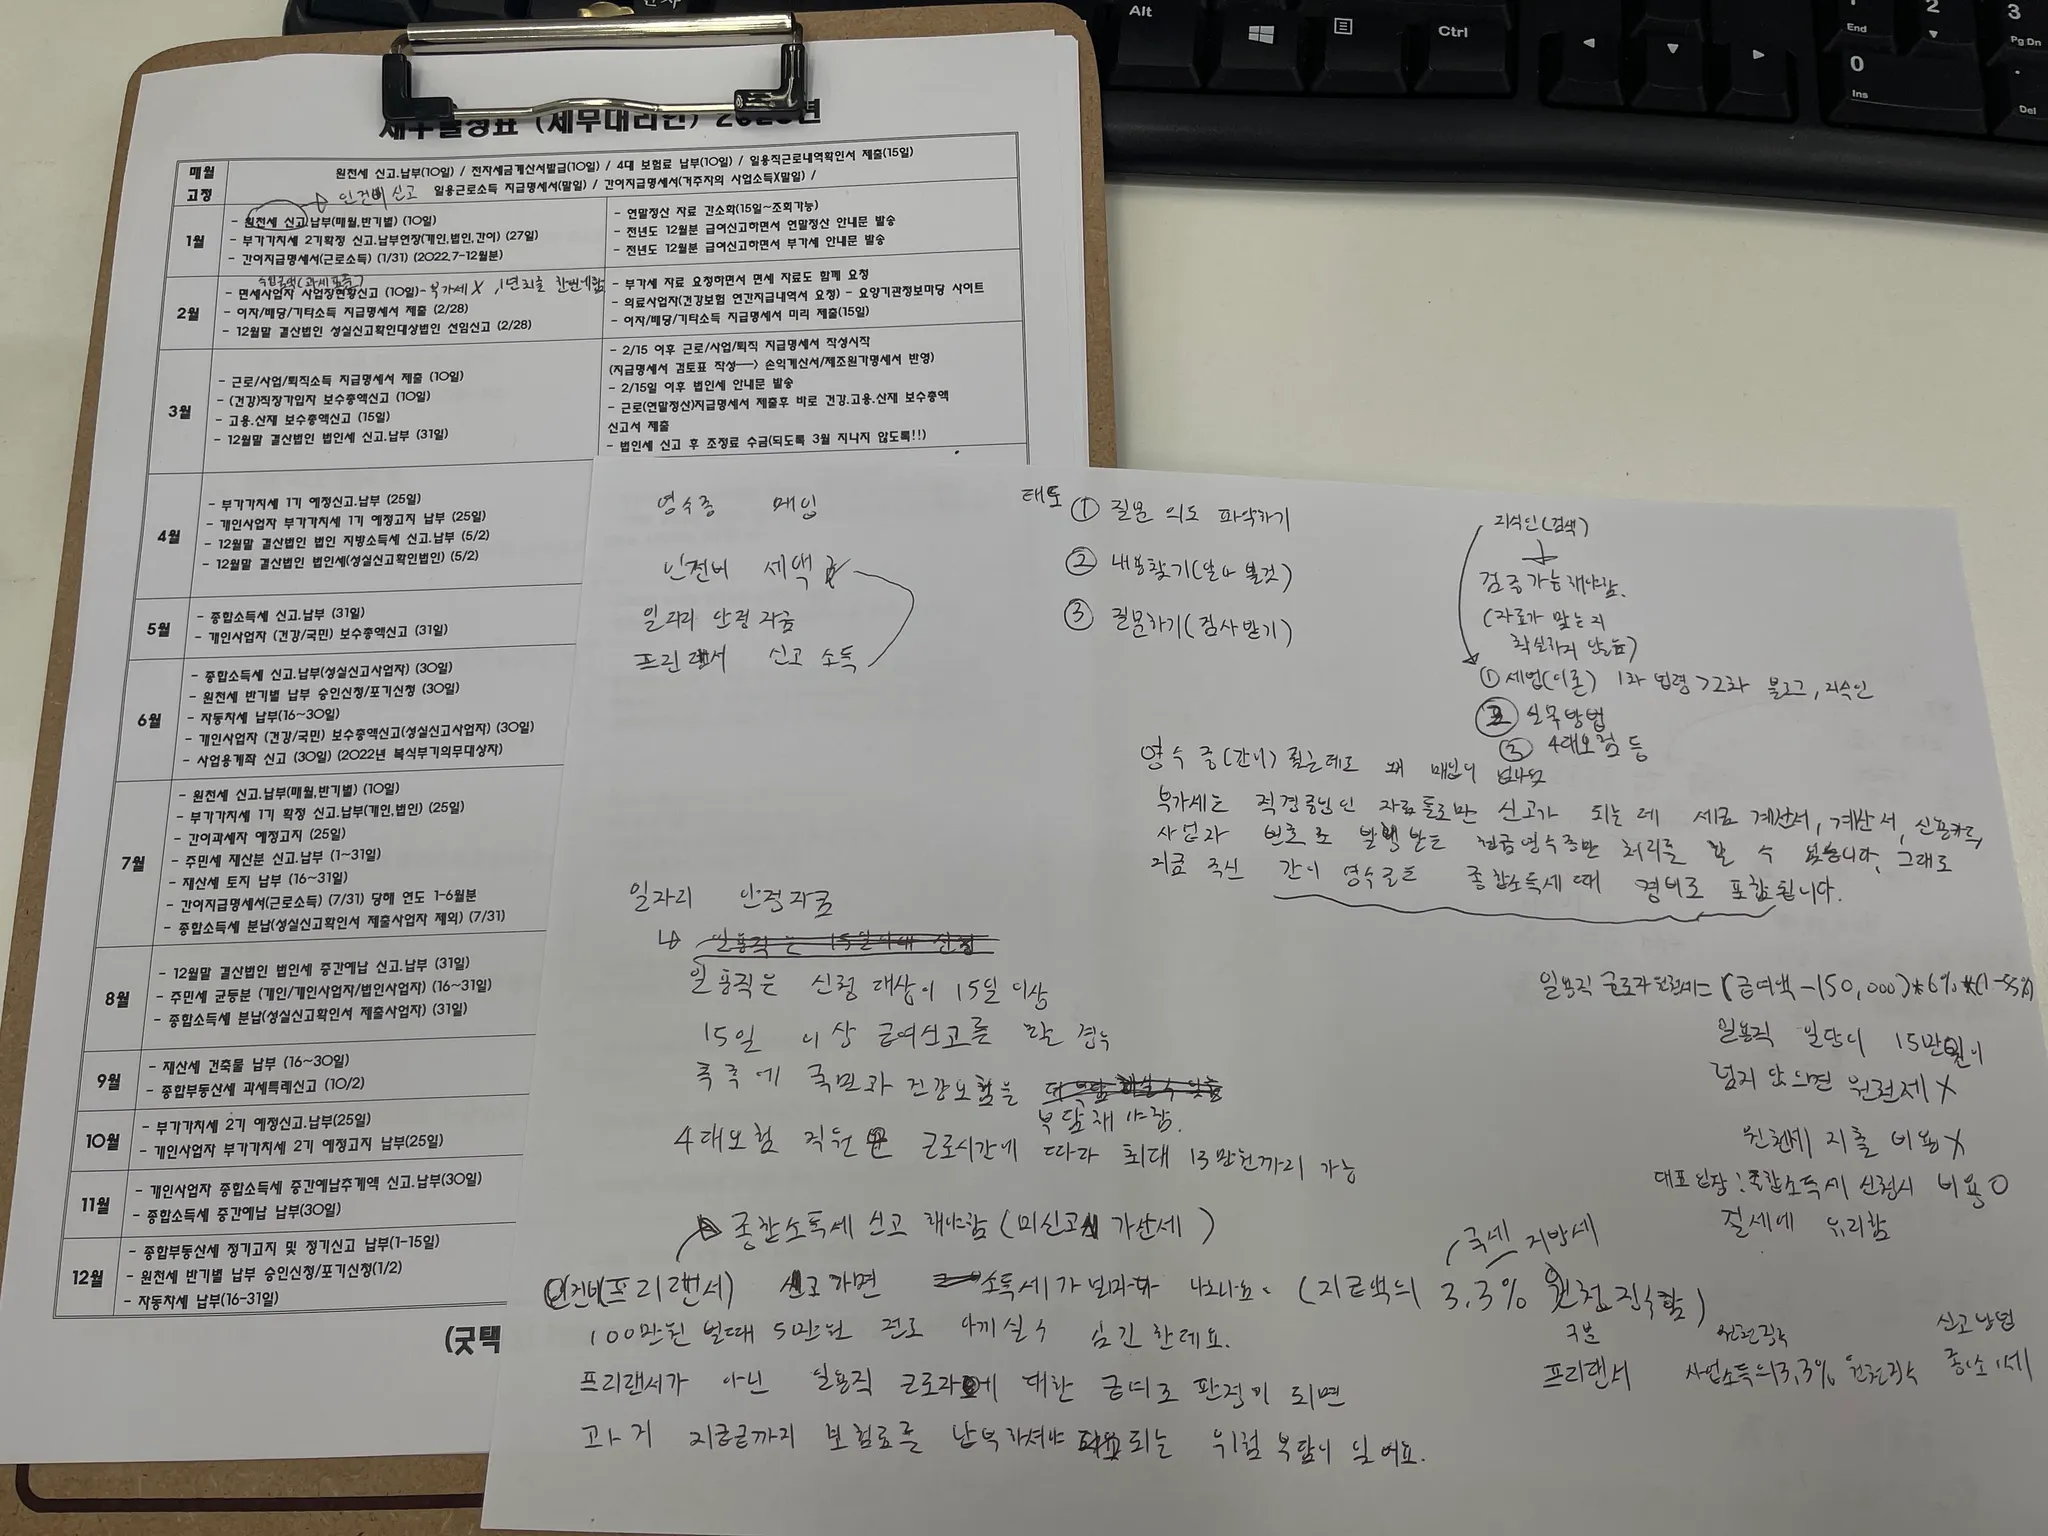 Alt
Ctrl
1
End
2
3
Pg Dn
0
Ins
Del
세무일정표 (세무대리인) 2023년
매월 고정
원천세 신고.납부(10일) / 전자세금계산서발급(10일) / 4대 보험료 납부(10일) / 일용직근로내역확인서 제출(15일)
일용근로소득 지급명세서(말일) / 간이지급명세서(거주자의 사업소득X말일) /
인건비 신고
1월
- 원천세 신고.납부(매월,반기별) (10일)
- 부가가치세 2기확정 신고.납부연장(개인,법인,간이) (27일)
- 간이지급명세서(근로소득) (1/31) (2022.7-12월분)
- 연말정산 자료 간소화(15일~조회가능)
- 전년도 12월분 급여신고하면서 연말정산 안내문 발송
- 전년도 12월분 급여신고하면서 부가세 안내문 발송
2월
수입금액(과세표준)
- 면세사업자 사업장현황신고 (10일) - 부가세X, 1년치를 한번에함
- 이자/배당/기타소득 지급명세서 제출 (2/28)
- 12월말 결산법인 성실신고확인대상법인 선임신고 (2/28)
- 부가세 자료 요청하면서 면세 자료도 함께 요청
- 의료사업자(건강보험 연간지급내역서 요청) - 요양기관정보마당 사이트
- 이자/배당/기타소득 지급명세서 미리 제출(15일)
3월
- 근로/사업/퇴직소득 지급명세서 제출 (10일)
- (건강)직장가입자 보수총액신고 (10일)
- 고용.산재 보수총액신고 (15일)
- 12월말 결산법인 법인세 신고.납부 (31일)
- 2/15 이후 근로/사업/퇴직 지급명세서 작성시작
(지급명세서 검토표 작성--> 손익계산서/제조원가명세서 반영)
- 2/15일 이후 법인세 안내문 발송
- 근로(연말정산)지급명세서 제출후 바로 건강.고용.산재 보수총액
신고서 제출
- 법인세 신고 후 조정료 수금(되도록 3월 지나지 않도록!!)
4월
- 부가가치세 1기 예정신고.납부 (25일)
- 개인사업자 부가가치세 1기 예정고지 납부 (25일)
- 12월말 결산법인 법인 지방소득세 신고.납부 (5/2)
- 12월말 결산법인 법인세(성실신고확인법인) (5/2)
5월
- 종합소득세 신고.납부 (31일)
- 개인사업자 (건강/국민) 보수총액신고 (31일)
6월
- 종합소득세 신고.납부(성실신고사업자) (30일)
- 원천세 반기별 납부 승인신청/포기신청 (30일)
- 자동차세 납부(16~30일)
- 개인사업자 (건강/국민) 보수총액신고(성실신고사업자) (30일)
- 사업용계좌 신고 (30일) (2022년 복식부기의무대상자)
7월
- 원천세 신고.납부(매월,반기별) (10일)
- 부가가치세 1기 확정 신고.납부(개인,법인) (25일)
- 간이과세자 예정고지 (25일)
- 주민세 재산분 신고.납부 (1~31일)
- 재산세 토지 납부 (16~31일)
- 간이지급명세서(근로소득) (7/31) 당해 연도 1-6월분
- 종합소득세 분납(성실신고확인서 제출사업자 제외) (7/31)
8월
- 12월말 결산법인 법인세 중간예납 신고.납부 (31일)
- 주민세 균등분 (개인/개인사업자/법인사업자) (16~31일)
- 종합소득세 분납(성실신고확인서 제출사업자) (31일)
9월
- 재산세 건축물 납부 (16~30일)
- 종합부동산세 과세특례신고 (10/2)
10월
- 부가가치세 2기 예정신고.납부(25일)
- 개인사업자 부가가치세 2기 예정고지 납부(25일)
11월
- 개인사업자 종합소득세 중간예납추계액 신고.납부(30일)
- 종합소득세 중간예납 납부(30일)
12월
- 종합부동산세 정기고지 및 정기신고 납부(1-15일)
- 원천세 반기별 납부 승인신청/포기신청(1/2)
- 자동차세 납부(16-31일)
(굿택
영수증 매입
인건비 세액
일자리 안정 자금
프린랜서 신고 소득
태도 ① 질문 의도 파악하기
② 내용찾기(알아 볼것)
③ 질문하기(검사받기)
지식인(검색)
검증가능해야함.
(자료가 맞는지
확실하지 않음)
① 세법(이론) 1차 법령 > 2차 블로그, 지식인
② 실무방법
③ 4대보험 등
영수증(간이) 줬는데도 왜 매입이 없나요
부가세는 직경증빙인 자료들로만 신고가 되는데 세금계산서, 계산서, 신용카드,
사업자 번호로 발행받은 현금영수증만 처리를 할 수 있습니다. 그대로
지금 주신 간이 영수증은 종합소득세 때 경비로 포함됩니다.
일자리 안정자금
일용직은 신청 대상이 15일 이상
15일 이상 급여신고를 할 경우
추후에 국민과 건강보험을
부담해야함.
4대보험 직원 근로시간에 따라 최대 13만원까지 가능
일용직 근로자 원천세 = (급여액-150,000)*6%*(1-55%)
일용직 일당이 15만원이
넘지 않으면 원천세 X
원천세 지출 비용X
대표입장: 종합소득세 신청시 비용O
절세에 유리함
종합소득세 신고 해야함 (미신고시 가산세)
국세 지방세
인건비(프리랜서) 신고하면 소득세가 얼마나 나오나요. (지급액의 3.3% 원천징수함)
100만원 벌때 5만원 정도 아끼실 수 있긴 한데요.
프리랜서가 아닌 일용직 근로자에 대한 급여로 판정이 되면
과거 지금까지 보험료를 납부하셔야 되는 위험 부담이 있어요.
구분 원천징수 신고납부
프리랜서 사업소득의3.3% 원천징수 종.소.세